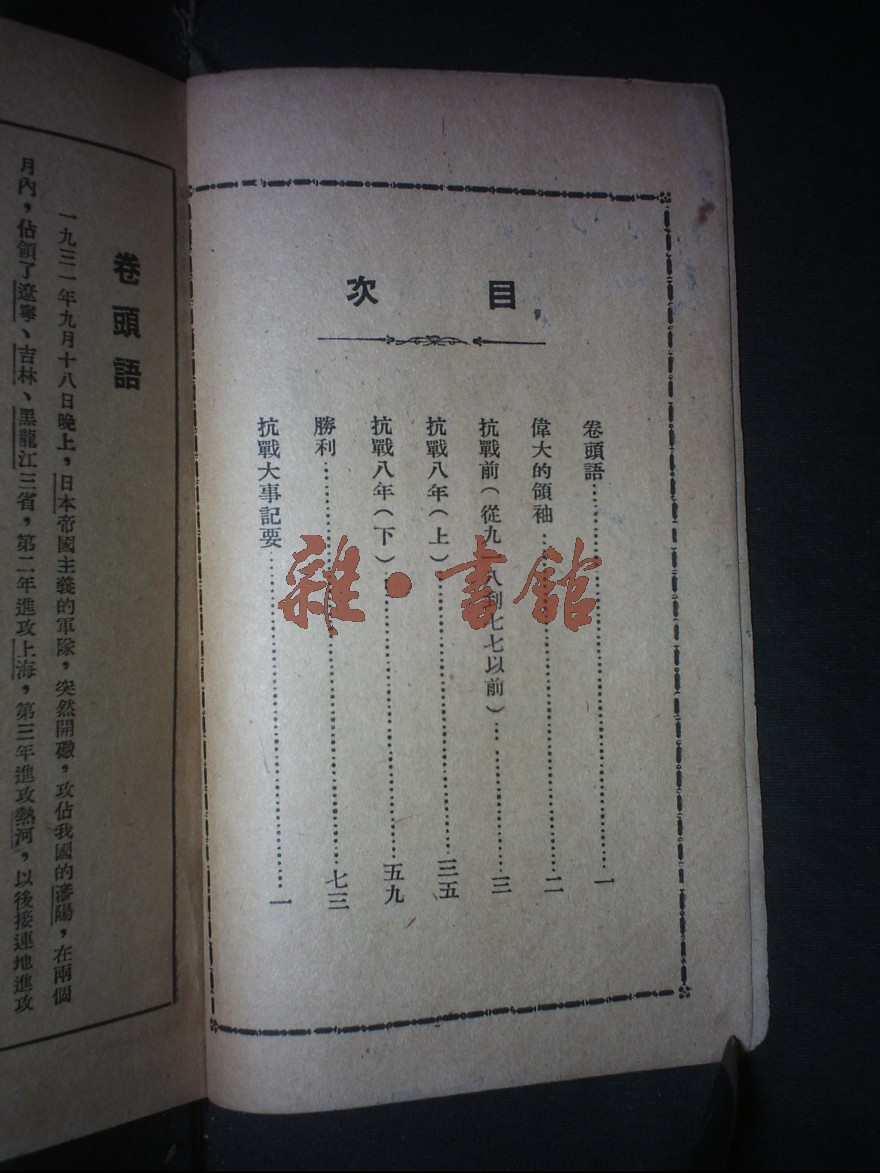 目次
卷頭語……一
偉大的領袖……二
抗戰前（從九一八到七七以前）……三
抗戰八年（上）……三五
抗戰八年（下）……五九
勝利……七三
抗戰大事記要……一
卷頭語
一九三一年九月十八日晚上，日本帝國主義的軍隊，突然開礮，攻佔我國的瀋陽，在兩個
月內，佔領了遼寧、吉林、黑龍江三省，第二年進攻上海，第三年進攻熱河，以後接連地進攻
雜·書館